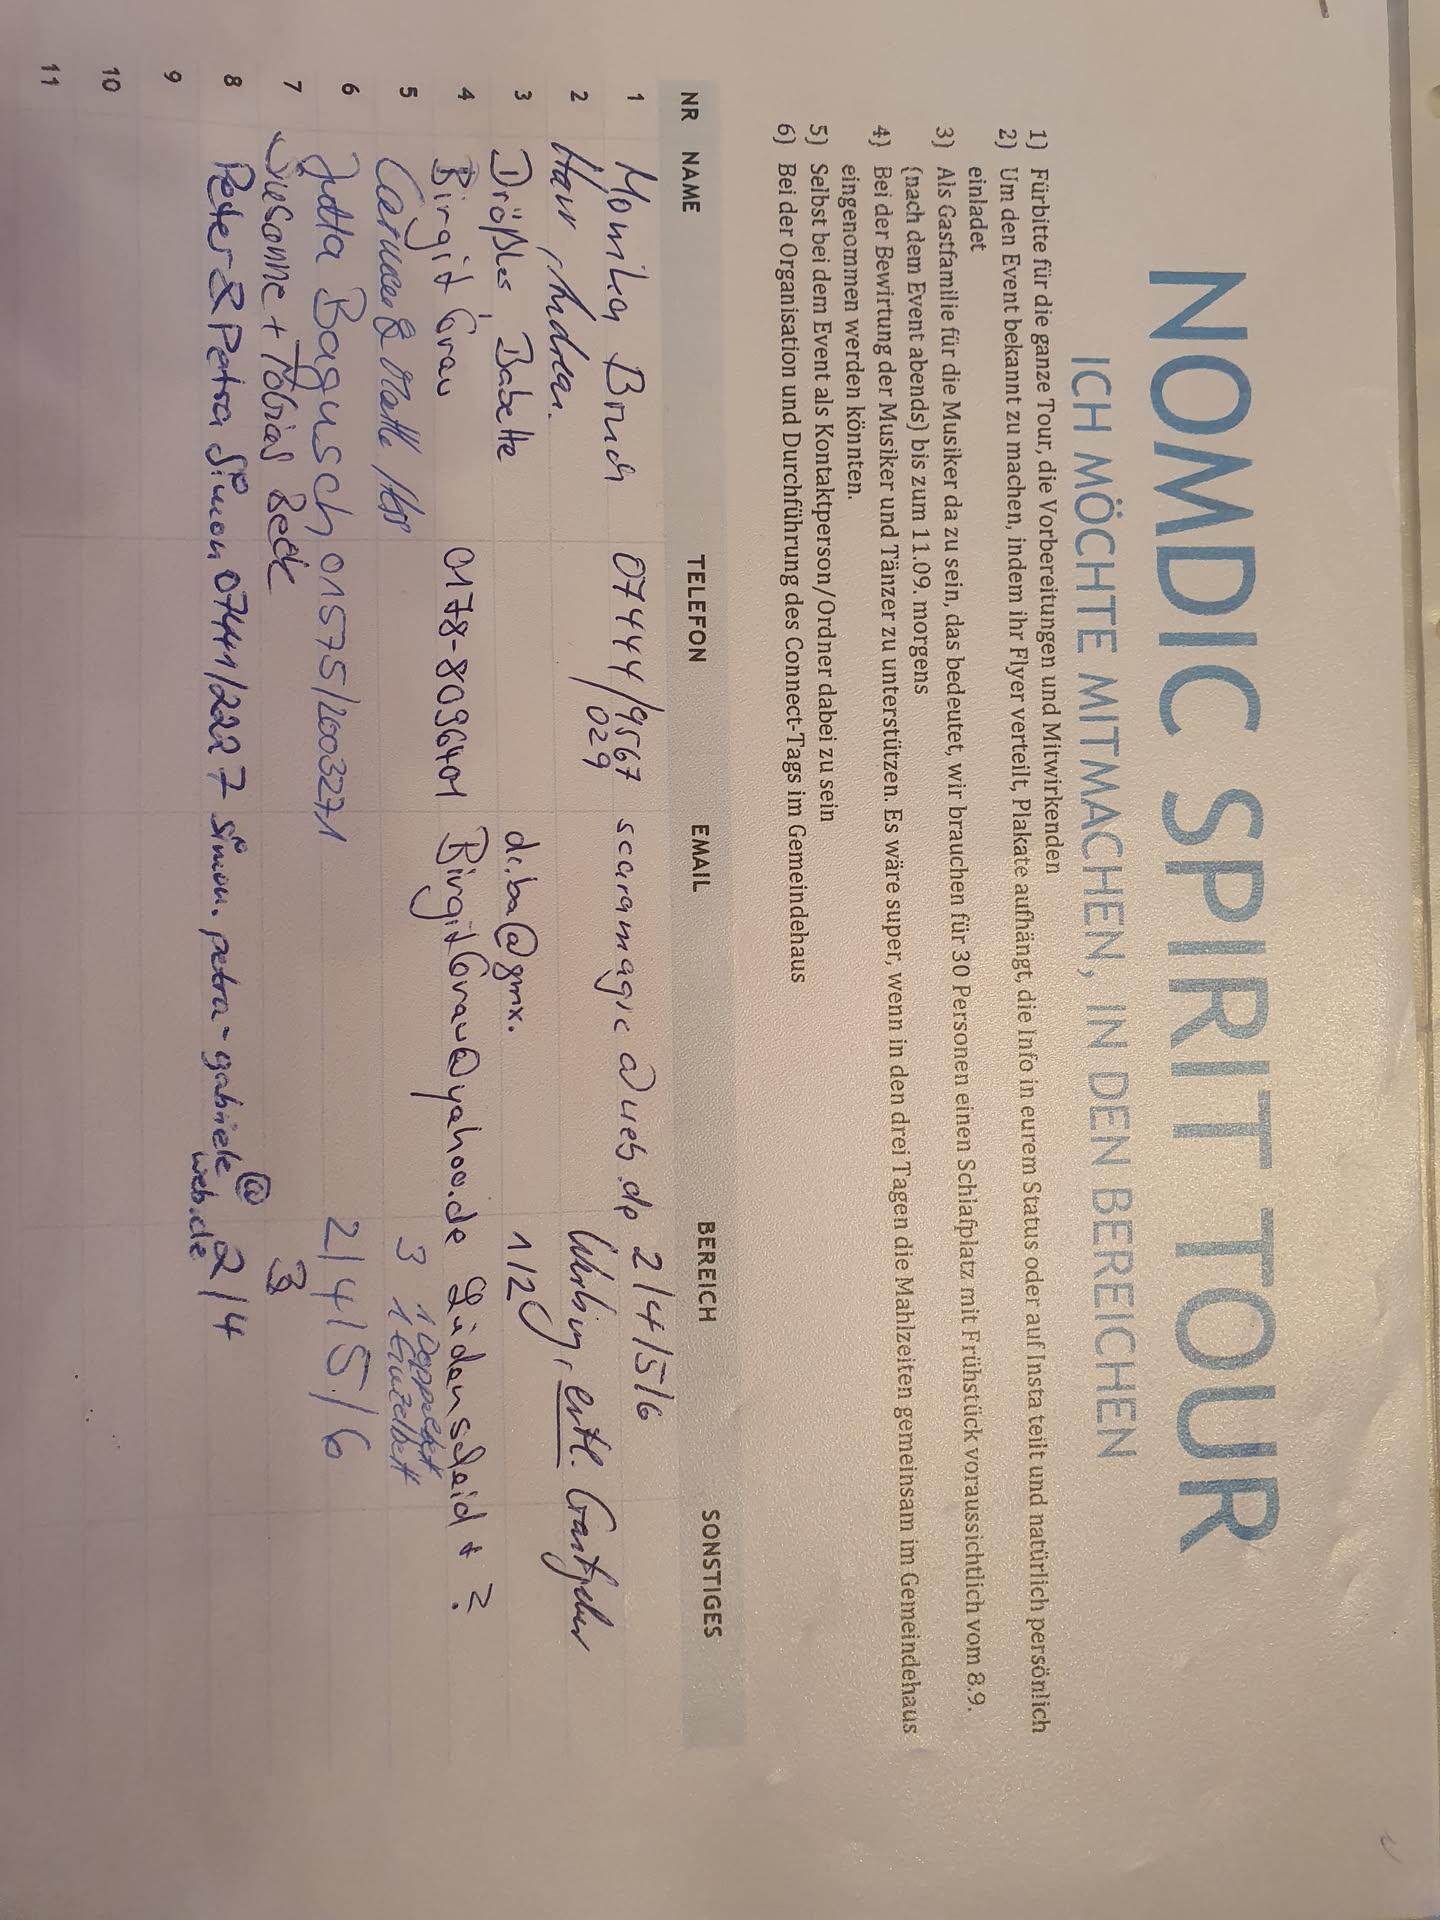 NOMDIC SPIRIT TOUR
ICH MÖCHTE MITMACHEN, IN DEN BEREICHEN
1) Fürbitte für die ganze Tour, die Vorbereitungen und Mitwirkenden
2) Um den Event bekannt zu machen, indem ihr Flyer verteilt, Plakate aufhängt, die Info in eurem Status oder auf Insta teilt und natürlich persönlich
einladet
3) Als Gastfamilie für die Musiker da zu sein, das bedeutet, wir brauchen für 30 Personen einen Schlafplatz mit Frühstück voraussichtlich vom 8.9.
(nach dem Event abends) bis zum 11.09. morgens
4) Bei der Bewirtung der Musiker und Tänzer zu unterstützen. Es wäre super, wenn in den drei Tagen die Mahlzeiten gemeinsam im Gemeindehaus
eingenommen werden könnten.
5) Selbst bei dem Event als Kontaktperson/Ordner dabei zu sein
6) Bei der Organisation und Durchführung des Connect-Tags im Gemeindehaus
NR NAME TELEFON EMAIL BEREICH SONSTIGES
1 Monika Bruch 07444/9567 029 scaramagic@web.de 2/4/5/6
2 Andrea evtl. Gastgeber
3 Drößler, Babette di.ba@gmx. 1/2
4 Birgit Grau 0178-8096401 BirgitGrau@yahoo.de
5 3 1 Doppelbett
1 Einzelbett
6 Jutta Bagusch 01575/2003271 2/4/5/6
7 Susanne + Tobias Beck 3
8 Peter & Petra Simon 07441/2227 simon.petra-gabriele@web.de 2/4
9
10
11